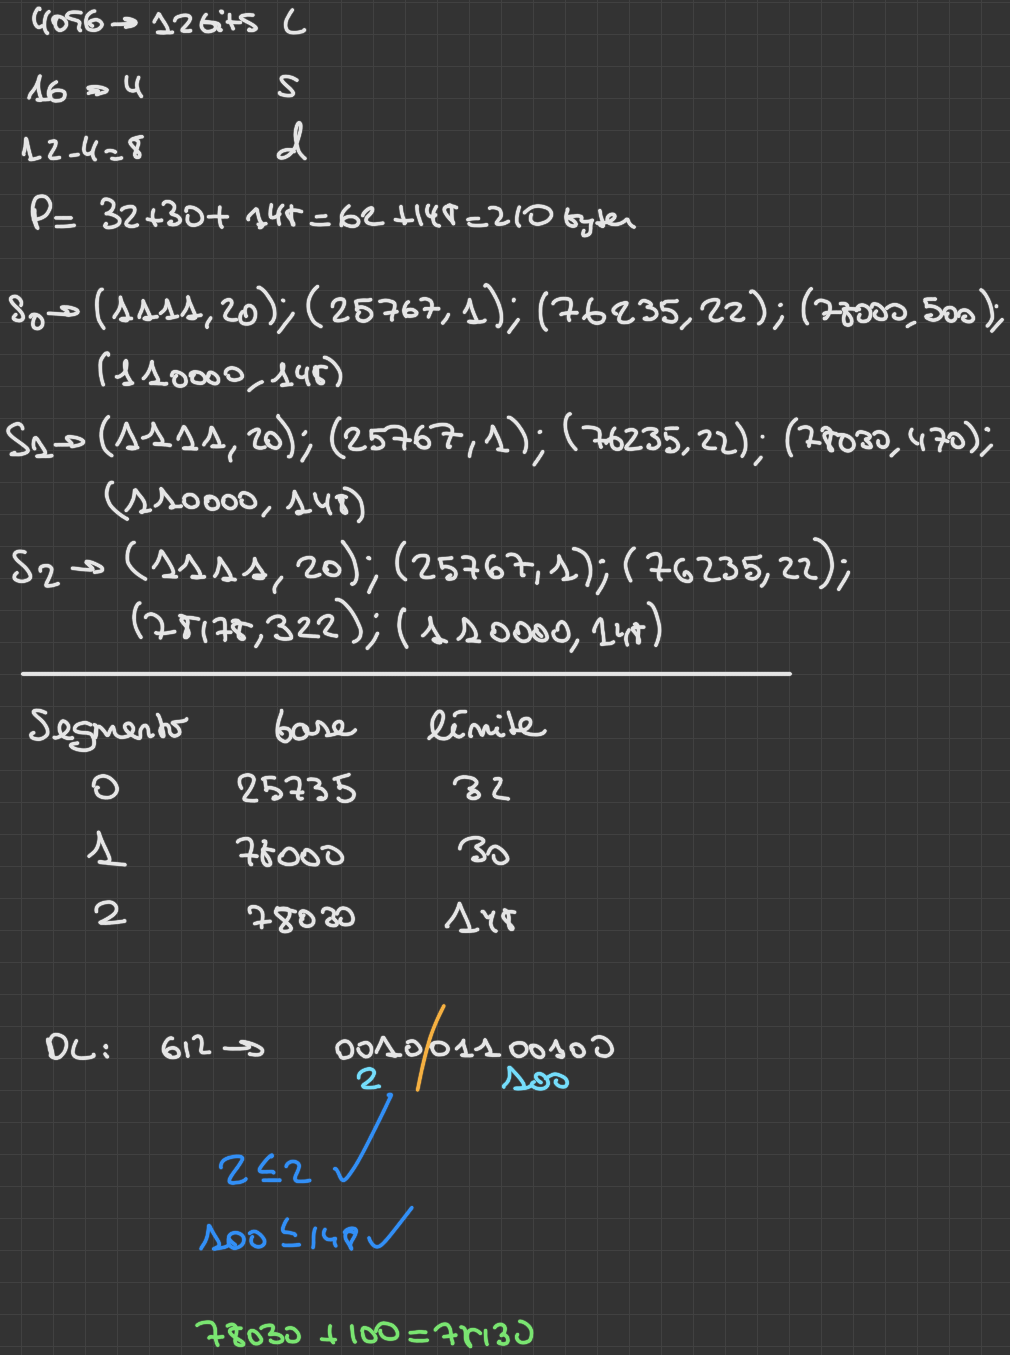 4096 → 12 bits L
16 → 4 S
12-4=8 d
P= 32+30+ 148 = 62 +148=210 bytes
S0 → (1111, 20); (25767, 1); (76235, 22); (78000, 500);
(110000, 148)
S1 → (1111, 20); (25767, 1); (76235, 22); (78030, 470);
(110000, 148)
S2 → (1111, 20); (25767, 1); (76235, 22);
(78178, 322); (110000, 148)
Segmento base límite
0 25735 32
1 78000 30
2 78030 148
DL: 612 → 0010/01100100
2 100
2 ≤ 2 ✓
100 ≤ 148 ✓
78030 + 100 = 78130